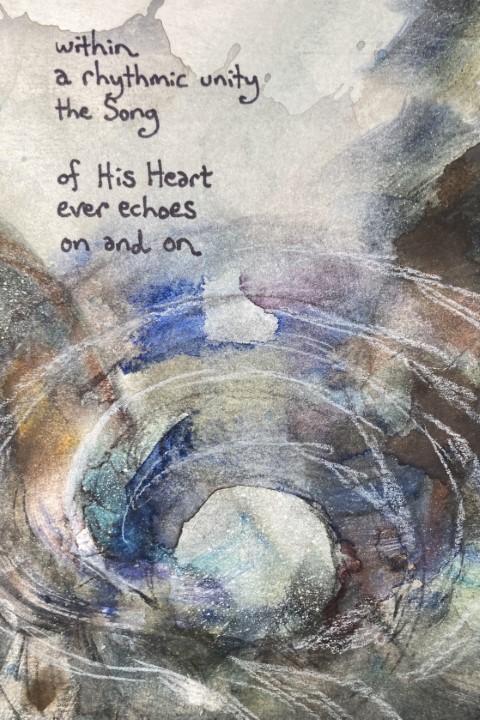 within
a rhythmic unity
the Song
of His Heart
ever echoes
on and on